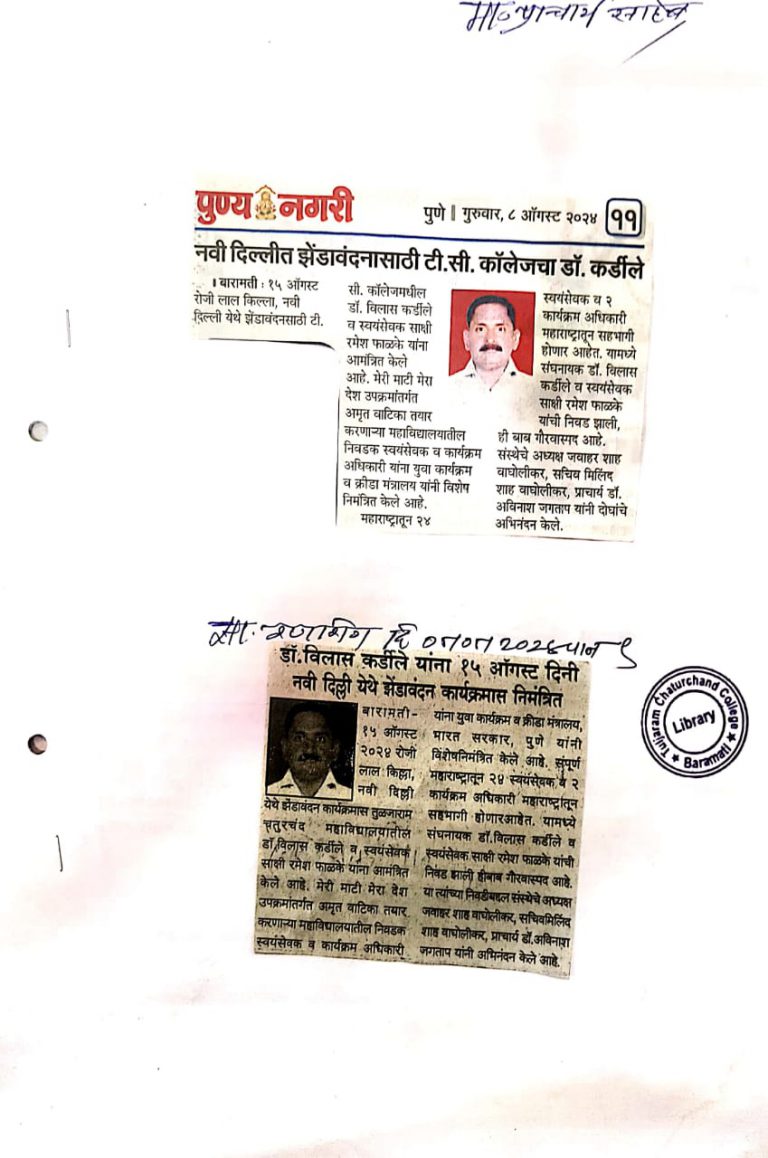 मा. प्राचार्य साहेब
पुण्य नगरी
पुणे || गुरुवार, ८ ऑगस्ट २०२४ ११
नवी दिल्लीत झेंडावंदनासाठी टी.सी. कॉलेजचा डॉ. कर्डीले
। बारामती : १५ ऑगस्ट
रोजी लाल किल्ला, नवी
दिल्ली येथे झेंडावंदनसाठी टी.
सी. कॉलेजमधील
डॉ. विलास कर्डीले
व स्वयंसेवक साक्षी
रमेश फाळके यांना
आमंत्रित केले
आहे. मेरी माटी मेरा
देश उपक्रमांतर्गत
अमृत वाटिका तयार
करणाऱ्या महाविद्यालयातील
निवडक स्वयंसेवक व कार्यक्रम
अधिकारी यांना युवा कार्यक्रम
व क्रीडा मंत्रालय यांनी विशेष
निमंत्रित केले आहे.
महाराष्ट्रातून २४
स्वयंसेवक व २
कार्यक्रम अधिकारी
महाराष्ट्रातून सहभागी
होणार आहेत. यामध्ये
संघनायक डॉ. विलास
कर्डीले व स्वयंसेवक
साक्षी रमेश फाळके
यांची निवड झाली,
ही बाब गौरवास्पद आहे.
संस्थेचे अध्यक्ष जवाहर शाह
वाघोलीकर, सचिव मिलिंद
शाह वाघोलीकर, प्राचार्य डॉ.
अविनाश जगताप यांनी दोघांचे
अभिनंदन केले.
डॉ.विलास कर्डीले यांना १५ ऑगस्ट दिनी
नवी दिल्ली येथे झेंडावंदन कार्यक्रमास निमंत्रित
बारामती-
१५ ऑगस्ट
२०२४ रोजी
लाल किल्ला,
नवी दिल्ली
येथे झेंडावंदन कार्यक्रमास तुळजाराम
चतुरचंद महाविद्यालयातील
डॉ.विलास कर्डीले व स्वयंसेवक
साक्षी रमेश फाळके यांना आमंत्रित
केले आहे. मेरी माटी मेरा देश
उपक्रमांतर्गत अमृत वाटिका तयार
करणाऱ्या महाविद्यालयातील निवडक
स्वयंसेवक व कार्यक्रम अधिकारी
यांना युवा कार्यक्रम व क्रीडा मंत्रालय,
भारत सरकार, पुणे यांनी
विशेषनिमंत्रित केले आहे. संपूर्ण
महाराष्ट्रातून २४ स्वयंसेवक व २
कार्यक्रम अधिकारी महाराष्ट्रातून
सहभागी होणारआहेत. यामध्ये
संघनायक डॉ.विलास कर्डीले व
स्वयंसेवक साक्षी रमेश फाळके यांची
निवड झाली हीबाब गौरवास्पद आहे.
या त्यांच्या निवडीबद्दल संस्थेचे अध्यक्ष
जवाहर शाह वाघोलीकर, सचिवमिलिंद
शाह वाघोलीकर, प्राचार्य डॉ.अविनाश
जगताप यांनी अभिनंदन केले आहे.
Tuljaram Chaturchand College
Library
★ Baramati ★